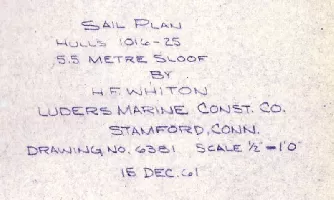 SAIL PLAN
HULLS 1016-25
5.5 METRE SLOOP
BY
H.F. WHITON
LUDERS MARINE CONST. CO.
STAMFORD, CONN.
DRAWING NO. 6381 SCALE ½"=1'0"
15 DEC. 61